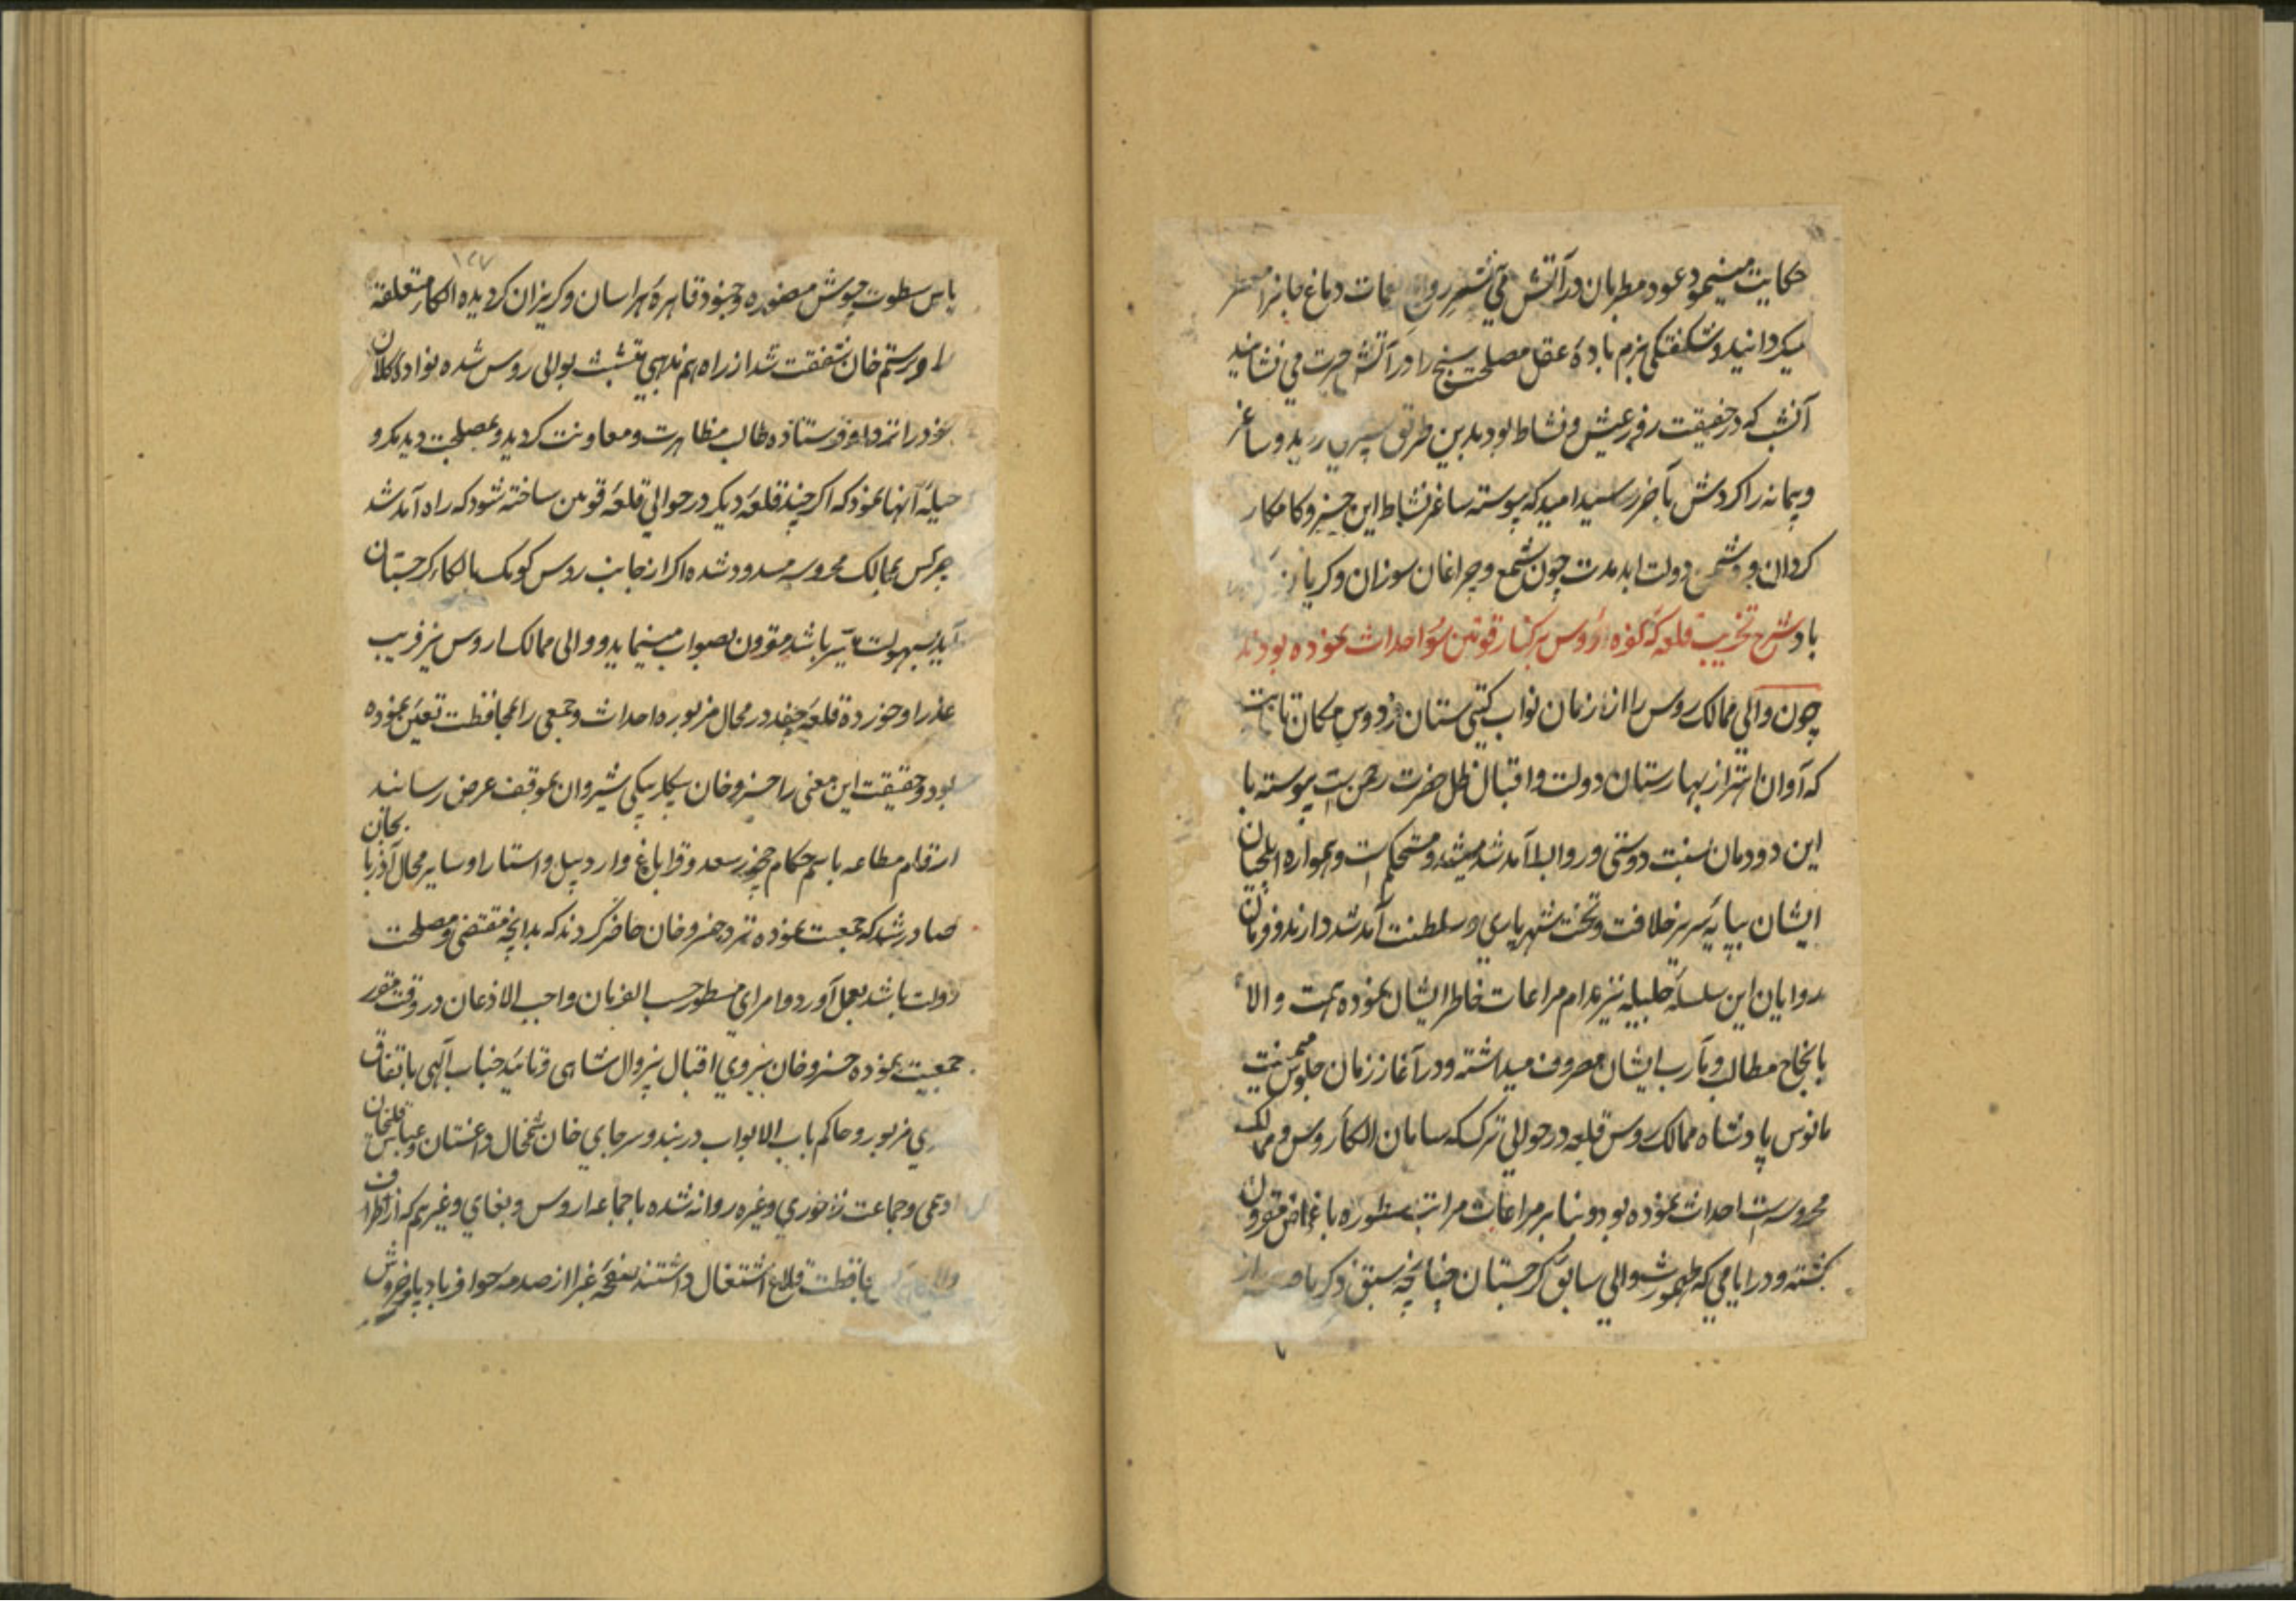 حکایت مینیمود عود مطربان در آتش می نشست روایح نغمات دماغ جانرا معطر
میکردانید و شکفتکی بزم باده عقل مصلحت سنج را در آتش حیرت می نشانید
آنشب که در حقیقت روز عیش و نشاط بود بدین طریق بسر رسید و ساغر
و پیمانه را کردش بآخر رسید امید که پیوسته ساغر نشاط این خسرو کامکار
کردان بود و شمن دولت ابد مدت چون شمع و چراغان سوزان و کریان
باد شرح تخریب قلعه که کفره اروس بر کنار قوین سو احداث نموده بودند
چون والی ممالک روس را از زمان نواب کیتی ستان فردوس مکان تا بحت
که آوان اهتزاز بهارستان دولت و اقبال ظل حضرت رحمن است پیوسته با
این دودمان نسبت دوستی و روابط آمد شد مشید و مستحکم است و همواره ایلچیان
ایشان بپایه سریر خلافت و تخت شهریاری و سلطنت آمد شد دارند و فرمان
روایان این سلسله جلیله نیز مدام مراعات خاطر ایشان نموده همت والا
بانجاح مطالب و مآرب ایشان مصروف میداشته و در آغاز زمان جلوس میمنت
مانوس پادشاه ممالک روس قلعه در حوالی ترک که سامان الکاء روس و ممالک
محروسه است احداث نموده بود و بنا بر مراعات مراتب مسطوره باغماض مقرون
کشته و در ایامی که طهمورث والی سابق کرجستان چنانچه سبق ذکر یافته از
باس سطوت جیوش منصوره و جنود قاهره هراسان و کریزان کردیده الکاء متعلقه
او برستم خان شفقت شد از راه هم مذهبی متشبث بوالی روس شده نواده کلان
خود را نزد او فرستاده طالب مظاهرت و معاونت کردید و بمصلحت دید مکر و
حیله آنها نمود که اکر چند قلعه دیکر در حوالی قلعه قوین ساخته شود که راه آمد شد
چرکس بممالک محروسه مسدود شده اکر از جانب روس کومک بالکاء کرجستان
آید بسهولت میسر باشد مقرون بصواب مینماید و والی ممالک اروس نیز فریب
عذر او خورده قلعه چند در محال مزبوره احداث و جمعی را بمحافظت تعین نموده
بود و حقیقت این معنی را خسرو خان بیکلربیکی شیروان بموقف عرض رسانید
ارقام مطاعه باسم حکام چخور سعد و قراباغ و اردبیل و استارا و سایر محال آذربایجان
صادر شد که جمعیت نموده نزد خسرو خان حاضر کردند که بدانچه مقتضی و مصلحت
دولت باشد بعمل آورد و امرای مسطور حسب الفرمان واجب الاذعان در وقت مقرر
جمعیت نموده خسرو خان بنیروی اقبال بیزوال شاهی و تائید جناب الهی باتفاق
ی مزبور و حاکم باب الابواب دربند و سرخای خان شمخال داغستان و عباسقلیخان
اوسمی و جماعت نزخوری و غیره روانه شده با جماعه اروس و بغای و غیرهم که از اطراف
بافظت قلاع اشتغال داشتند صفحه غبرا از صدمه حوافر بادپا خروش